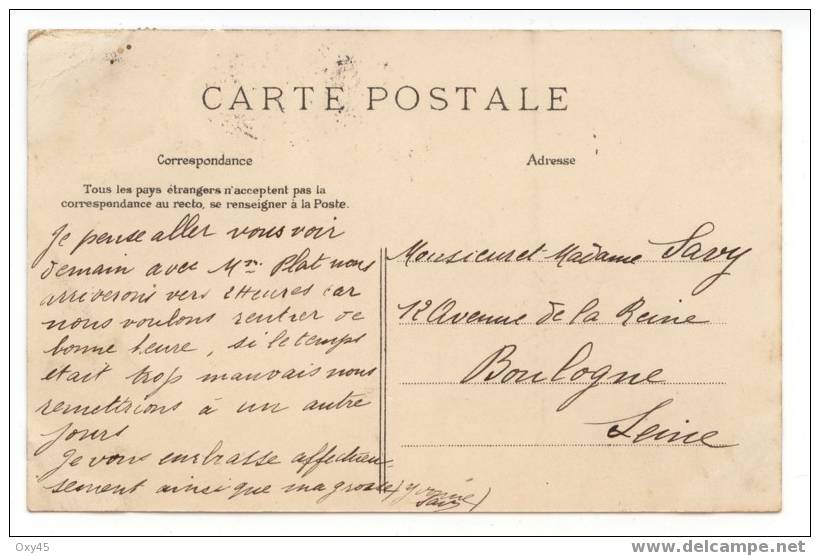 CARTE POSTALE
Correspondance
Adresse
Tous les pays étrangers n'acceptent pas la
correspondance au recto, se renseigner à la Poste.
Je pense aller vous voir
demain avec Mm Plat nous
arriverons vers 2 Heures car
nous voulons rentrer de
bonne heure, si le temps
était trop mauvais nous
remettrions à un autre
jours
Je vous embrasse affectueu-
sement ainsi que ma grosse
Monsieur et Madame Savy
12 Avenue de la Reine
Boulogne
Seine
Oxy45
www.delcampe.net